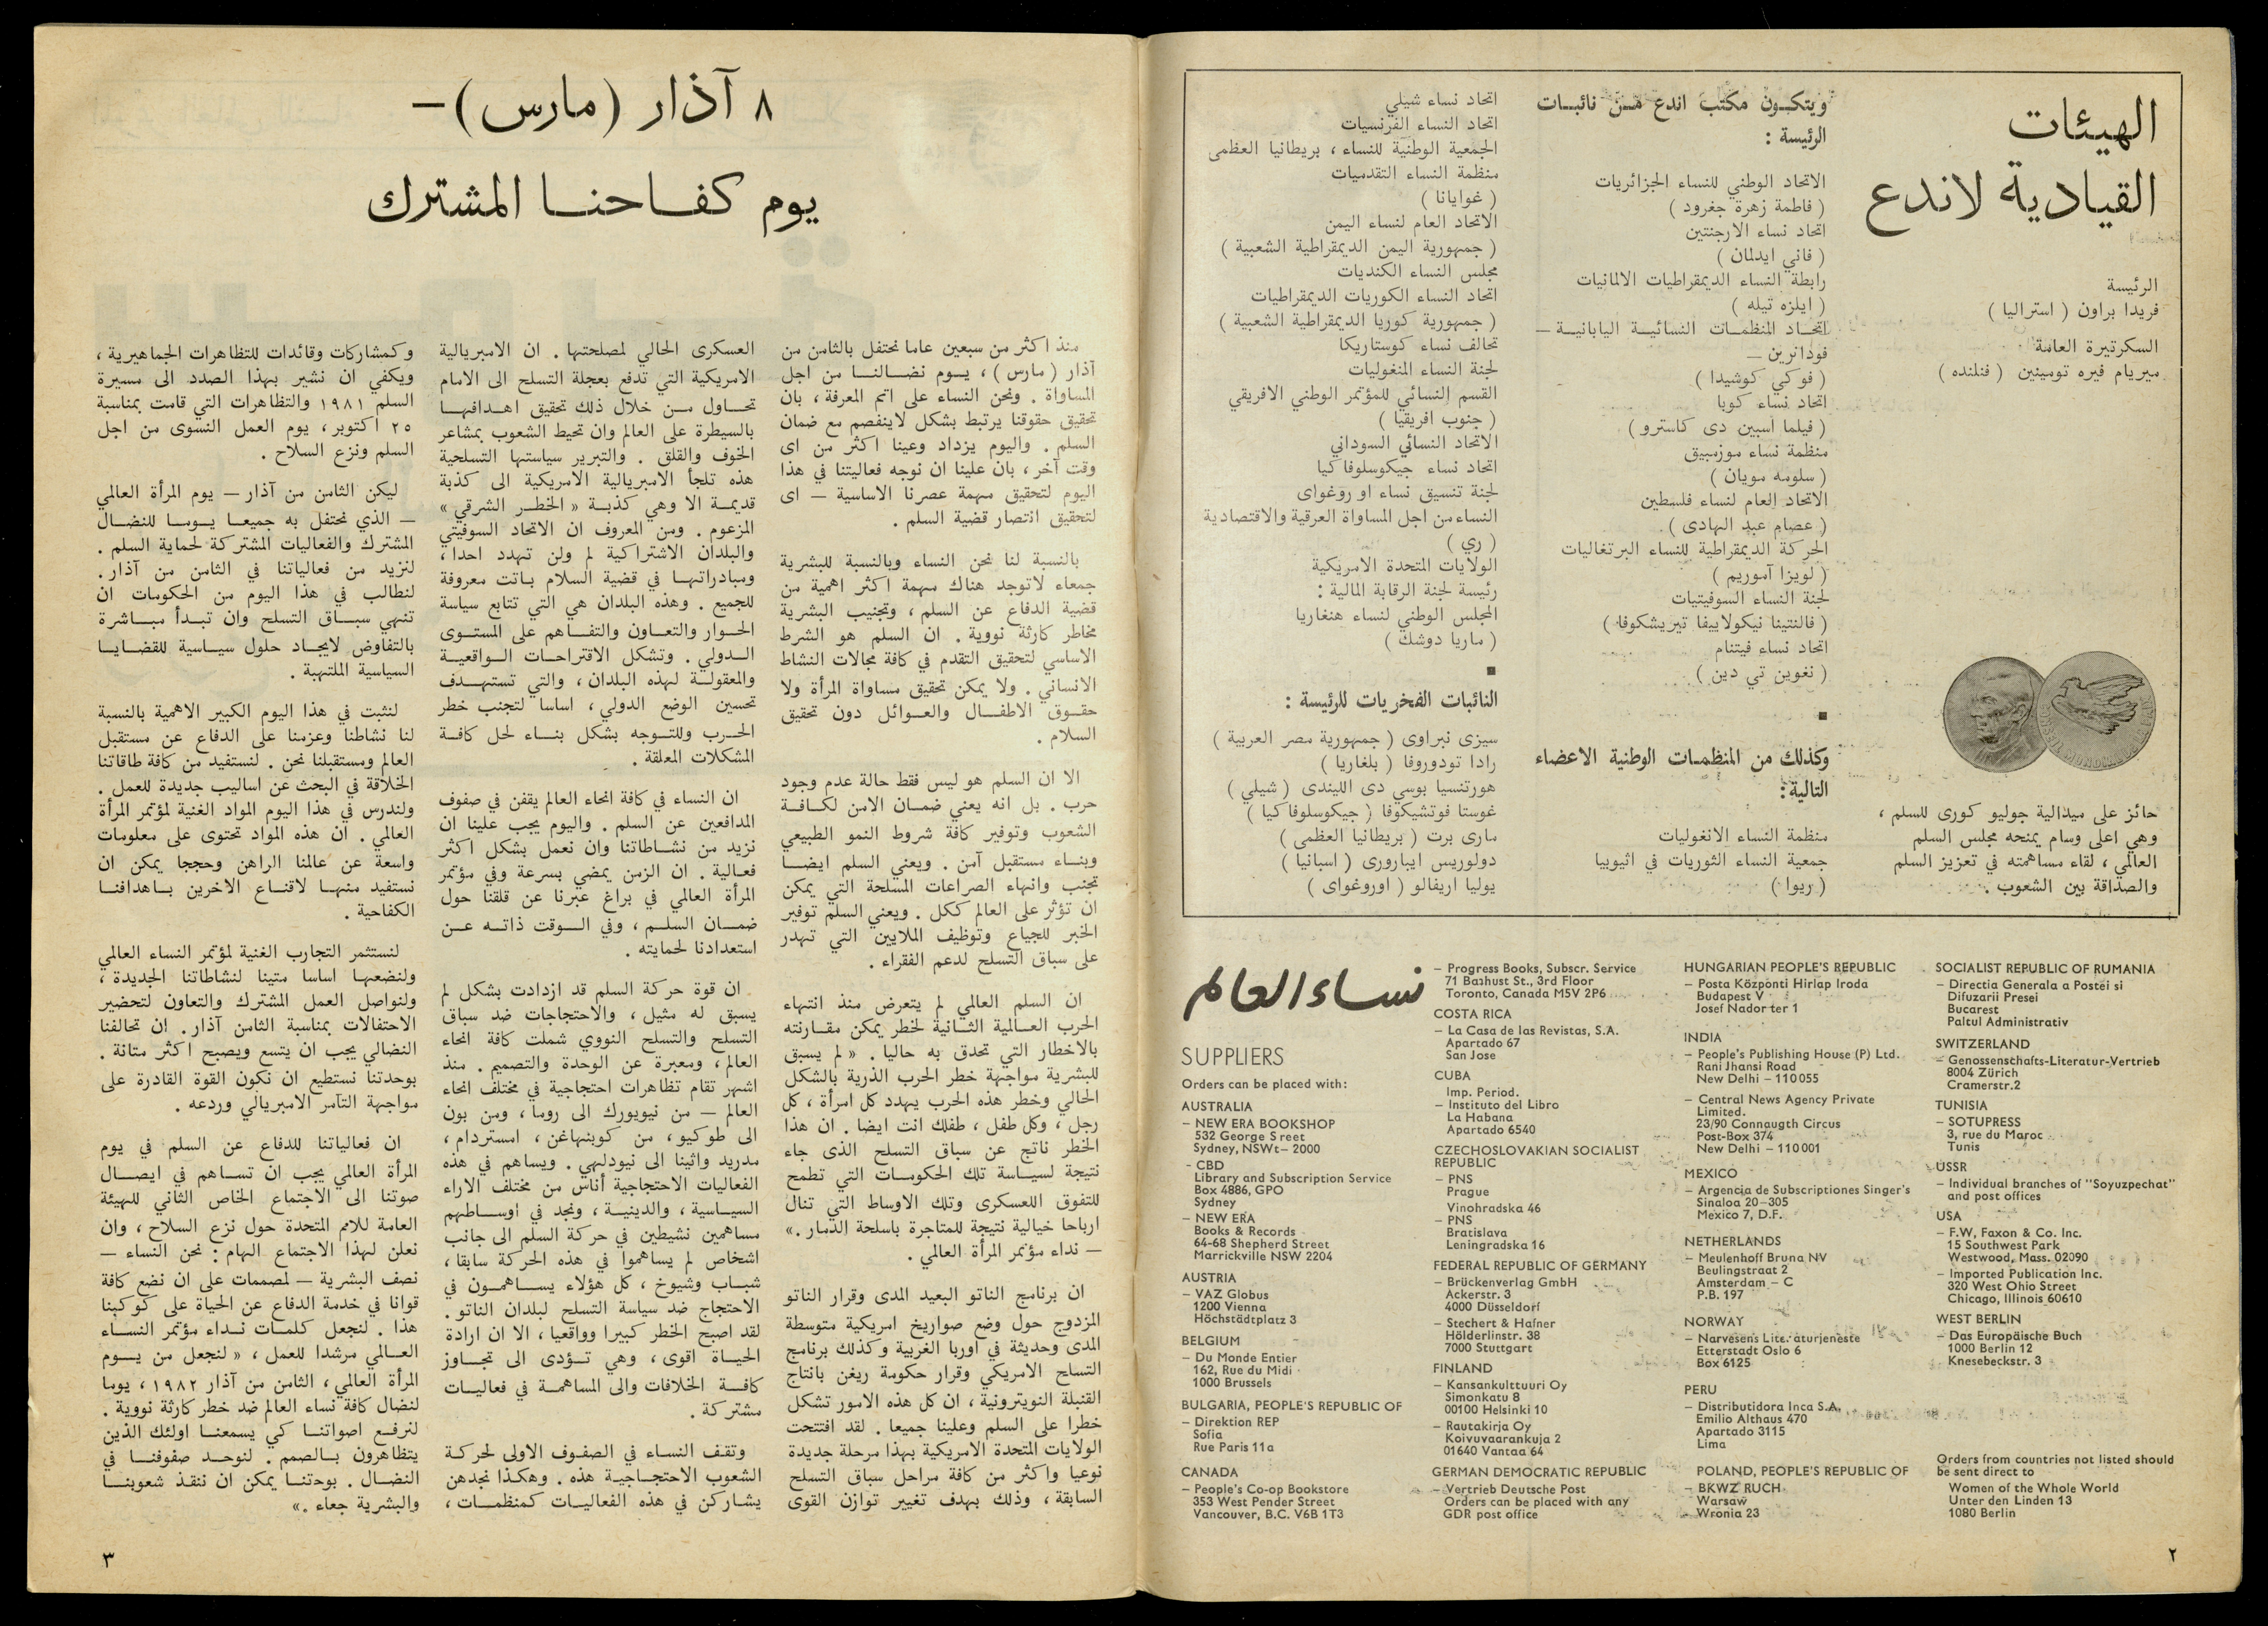 الهيئات
القيادية لاندع
الرئيسة
فريدا براون ( استراليا )
السكرتيرة العامة
ميريام فيره تومينين ( فنلنده )
حائز على ميدالية جوليو كورى للسلم ،
وهي اعلى وسام يمنحه مجلس السلم
العالمي ، لقاء مساهمته في تعزيز السلم
والصداقة بين الشعوب .
ويتكون مكتب اندع من نائبات
الرئيسة :
الاتحاد الوطني للنساء الجزائريات
( فاطمة زهرة جغرود )
اتحاد نساء الارجنتين
( فاني ايدلمان )
رابطة النساء الديمقراطيات الالمانيات
( ايلزه تيله )
اتحاد المنظمات النسائية اليابانية —
فودانرين —
( فوكي كوشيدا )
اتحاد نساء كوبا
( فيلما اسبين دى كاسترو )
منظمة نساء موزمبيق
( سلومه مويان )
الاتحاد العام لنساء فلسطين
( عصام عبد الهادى )
الحركة الديمقراطية للنساء البرتغاليات
( لويزا آموريم )
لجنة النساء السوفيتيات
( فالنتينا نيكولاييفا تيريشكوفا )
اتحاد نساء فيتنام
( نغوين تي دين )
وكذلك من المنظمات الوطنية الاعضاء
التالية :
منظمة النساء الانغوليات
جمعية النساء الثوريات في اثيوبيا
( ريوا )
اتحاد نساء شيلي
اتحاد النساء الفرنسيات
الجمعية الوطنية للنساء ، بريطانيا العظمى
منظمة النساء التقدميات
( غوايانا )
الاتحاد العام لنساء اليمن
( جمهورية اليمن الديمقراطية الشعبية )
مجلس النساء الكنديات
اتحاد النساء الكوريات الديمقراطيات
( جمهورية كوريا الديمقراطية الشعبية )
تحالف نساء كوستاريكا
لجنة النساء المنغوليات
القسم النسائي للمؤتمر الوطني الافريقي
( جنوب افريقيا )
الاتحاد النسائي السوداني
اتحاد نساء جيكوسلوفاكيا
لجنة تنسيق نساء اوروغواى
النساء من اجل المساواة العرقية والاقتصادية
( ري )
الولايات المتحدة الامريكية
رئيسة لجنة الرقابة المالية :
المجلس الوطني لنساء هنغاريا
( ماريا دوشك )
النائبات الفخريات للرئيسة :
سيزى نبراوى ( جمهورية مصر العربية )
رادا تودوروفا ( بلغاريا )
هورتنسيا بوسي دى الليندى ( شيلي )
غوستا فوتشيكوفا ( جيكوسلوفاكيا )
مارى برت ( بريطانيا العظمى )
دولوريس ايبارورى ( اسبانيا )
يوليا اريفالو ( اوروغواى )
نساء العالم
SUPPLIERS
Orders can be placed with:
AUSTRALIA
– NEW ERA BOOKSHOP
532 George S reet
Sydney, NSWt– 2000
- CBD
Library and Subscription Service
Box 4886, GPO
Sydney
– NEW ERA
Books & Records
64-68 Shepherd Street
Marrickville NSW 2204
AUSTRIA
– VAZ Globus
1200 Vienna
Höchstädtplatz 3
BELGIUM
– Du Monde Entier
162, Rue du Midi
1000 Brussels
BULGARIA, PEOPLE'S REPUBLIC OF
– Direktion REP
Sofia
Rue Paris 11a
CANADA
– People's Co-op Bookstore
353 West Pender Street
Vancouver, B.C. V6B 1T3
– Progress Books, Subscr. Service
71 Bathust St., 3rd Floor
Toronto, Canada M5V 2P6
COSTA RICA
– La Casa de las Revistas, S.A.
Apartado 67
San Jose
CUBA
Imp. Period.
– Instituto del Libro
La Habana
Apartado 6540
CZECHOSLOVAKIAN SOCIALIST
REPUBLIC
– PNS
Prague
Vinohradska 46
– PNS
Bratislava
Leningradska 16
FEDERAL REPUBLIC OF GERMANY
– Brückenverlag GmbH
Ackerstr. 3
4000 Düsseldorf
– Stechert & Hafner
Hölderlinstr. 38
7000 Stuttgart
FINLAND
– Kansankulttuuri Oy
Simonkatu 8
00100 Helsinki 10
– Rautakirja Oy
Koivuvaarankuja 2
01640 Vantaa 64
GERMAN DEMOCRATIC REPUBLIC
– Vertrieb Deutsche Post
Orders can be placed with any
GDR post office
HUNGARIAN PEOPLE'S REPUBLIC
– Posta Központi Hirlap Iroda
Budapest V
Josef Nador ter 1
INDIA
– People's Publishing House (P) Ltd.
Rani Jhansi Road
New Delhi – 110055
– Central News Agency Private
Limited.
23/90 Connaugth Circus
Post-Box 374
New Delhi – 110001
MEXICO
– Argencia de Subscriptiones Singer's
Sinaloa 20–305
Mexico 7, D.F.
NETHERLANDS
– Meulenhoff Bruna NV
Beulingstraat 2
Amsterdam – C
P.B. 197
NORWAY
– Narvesens Litteraturjeneste
Etterstadt Oslo 6
Box 6125
PERU
– Distributidora Inca S.A.
Emilio Althaus 470
Apartado 3115
Lima
POLAND, PEOPLE'S REPUBLIC OF
– BKWZ RUCH
Warsaw
Wronia 23
SOCIALIST REPUBLIC OF RUMANIA
– Directia Generala a Postei si
Difuzarii Presei
Bucarest
Paltul Administrativ
SWITZERLAND
– Genossenschafts-Literatur-Vertrieb
8004 Zürich
Cramerstr.2
TUNISIA
– SOTUPRESS
3, rue du Maroc
Tunis
USSR
– Individual branches of "Soyuzpechat"
and post offices
USA
– F.W, Faxon & Co. Inc.
15 Southwest Park
Westwood, Mass. 02090
– Imported Publication Inc.
320 West Ohio Street
Chicago, Illinois 60610
WEST BERLIN
– Das Europäische Buch
1000 Berlin 12
Knesebeckstr. 3
Orders from countries not listed should
be sent direct to
Women of the Whole World
Unter den Linden 13
1080 Berlin
٢
٨ آذار (مارس) —
يوم كفاحنا المشترك
منذ اكثر من سبعين عاما نحتفل بالثامن من
آذار (مارس) ، يوم نضالنا من اجل
المساواة . ونحن النساء على اتم المعرفة ، بان
تحقيق حقوقنا يرتبط بشكل لاينفصم مع ضمان
السلم . واليوم يزداد وعينا اكثر من اى
وقت آخر ، بان علينا ان نوجه فعاليتنا في هذا
اليوم لتحقيق مهمة عصرنا الاساسية — اى
لتحقيق انتصار قضية السلم .
بالنسبة لنا نحن النساء وبالنسبة للبشرية
جمعاء لاتوجد هناك مهمة اكثر اهمية من
قضية الدفاع عن السلم ، وتجنيب البشرية
مخاطر كارثة نووية . ان السلم هو الشرط
الاساسي لتحقيق التقدم في كافة مجالات النشاط
الانساني . ولا يمكن تحقيق مساواة المرأة ولا
حقوق الاطفال والعوائل دون تحقيق
السلام .
الا ان السلم هو ليس فقط حالة عدم وجود
حرب . بل انه يعني ضمان الامن لكافة
الشعوب وتوفير كافة شروط النمو الطبيعي
وبناء مستقبل آمن . ويعني السلم ايضا
تجنب وانهاء الصراعات المسلحة التي يمكن
ان تؤثر على العالم ككل . ويعني السلم توفير
الخبر للجياع وتوظيف الملايين التي تهدر
على سباق التسلح لدعم الفقراء .
ان السلم العالمي لم يتعرض منذ انتهاء
الحرب العالمية الثانية لخطر يمكن مقارنته
بالاخطار التي تحدق به حاليا . « لم يسبق
للبشرية مواجهة خطر الحرب الذرية بالشكل
الحالي وخطر هذه الحرب يهدد كل امرأة ، كل
رجل ، وكل طفل ، طفلك انت ايضا . ان هذا
الخطر ناتج عن سباق التسلح الذى جاء
نتيجة لسياسة تلك الحكومات التي تطمح
للتفوق اللعسكرى وتلك الاوساط التي تنال
ارباحا خيالية نتيجة للمتاجرة باسلحة الدمار . »
— نداء مؤتمر المرأة العالمي .
ان برنامج الناتو البعيد المدى وقرار الناتو
المزدوج حول وضع صواريخ امريكية متوسطة
المدى وحديثة في اوربا الغربية وكذلك برنامج
التسلح الامريكي وقرار حكومة ريغن بانتاج
القنبلة النويترونية ، ان كل هذه الامور تشكل
خطرا على السلم وعلينا جميعا . لقد افتتحت
الولايات المتحدة الامريكية بهذا مرحلة جديدة
نوعيا واكثر من كافة مراحل سباق التسلح
السابقة ، وذلك بهدف تغيير توازن القوى
العسكرى الحالي لمصلحتها . ان الامبريالية
الامريكية التي تدفع بعجلة التسلح الى الامام
تحاول من خلال ذلك تحقيق اهدافها
بالسيطرة على العالم وان تحيط الشعوب بمشاعر
الخوف والقلق . والتبرير سياستها التسلحية
هذه تلجأ الامبريالية الامريكية الى كذبة
قديمة الا وهي كذبة « الخطر الشرقي »
المزعوم . ومن المعروف ان الاتحاد السوفيتي
والبلدان الاشتراكية لم ولن تهدد احدا ،
ومبادراتها في قضية السلام باتت معروفة
للجميع . وهذه البلدان هي التي تتابع سياسة
الحوار والتعاون والتفاهم على المستوى
الدولي . وتشكل الاقتراحات الواقعية
والمعقولة لهذه البلدان ، والتي تستهدف
تحسين الوضع الدولي ، اساسا لتجنب خطر
الحرب وللتوجه بشكل بناء لحل كافة
المشكلات المعلقة .
ان النساء في كافة انحاء العالم يقفن في صفوف
المدافعين عن السلم . واليوم يجب علينا ان
نزيد من نشاطاتنا وان نعمل بشكل اكثر
فعالية . ان الزمن يمضي بسرعة وفي مؤتمر
المرأة العالمي في براغ عبرنا عن قلقنا حول
ضمان السلم ، وفي الوقت ذاته عن
استعدادنا لحمايته .
ان قوة حركة السلم قد ازدادت بشكل لم
يسبق له مثيل ، والاحتجاجات ضد سباق
التسلح والتسلح النووي شملت كافة انحاء
العالم ، ومعبرة عن الوحدة والتصميم . منذ
اشهر تقام تظاهرات احتجاجية في مختلف انحاء
العالم — من نيويورك الى روما ، ومن بون
الى طوكيو ، من كوبنهاغن ، امستردام ،
مدريد واثينا الى نيودلهي . ويساهم في هذه
الفعاليات الاحتجاجية أناس من مختلف الاراء
السياسية ، والدينية ، ونجد في اوساطهم
مساهمين نشيطين في حركة السلم الى جانب
اشخاص لم يساهموا في هذه الحركة سابقا ،
شباب وشيوخ ، كل هؤلاء يساهمون في
الاحتجاج ضد سياسة التسلح لبلدان الناتو .
لقد اصبح الخطر كبيرا وواقعيا ، الا ان ارادة
الحياة اقوى ، وهي تؤدى الى تجاوز
كافة الخلافات والى المساهمة في فعاليات
مشتركة .
وتقف النساء في الصفوف الاولى لحركة
الشعوب الاحتجاجية هذه . وهكذا نجدهن
يشاركن في هذه الفعاليات كمنظمات ،
وكمشاركات وقائدات للتظاهرات الجماهيرية ،
ويكفي ان نشير بهذا الصدد الى مسيرة
السلم ١٩٨١ والتظاهرات التي قامت بمناسبة
٢٥ اكتوبر ، يوم العمل النسوى من اجل
السلم ونزع السلاح .
ليكن الثامن من آذار — يوم المرأة العالمي
— الذي نحتفل به جميعا يوما للنضال
المشترك والفعاليات المشتركة لحماية السلم .
لنزيد من فعالياتنا في الثامن من آذار .
لنطالب في هذا اليوم من الحكومات ان
تنهي سباق التسلح وان تبدأ مباشرة
بالتفاوض لايجاد حلول سياسية للقضايا
السياسية الملتهبة .
لنثبت في هذا اليوم الكبير الاهمية بالنسبة
لنا نشاطنا وعزمنا على الدفاع عن مستقبل
العالم ومستقبلنا نحن . لنستفيد من كافة طاقاتنا
الخلاقة في البحث عن اساليب جديدة للعمل .
ولندرس في هذا اليوم المواد الغنية لمؤتمر المرأة
العالمي . ان هذه المواد تحتوى على معلومات
واسعة عن عالمنا الراهن وحججا يمكن ان
نستفيد منها لاقناع الاخرين باهدافنا
الكفاحية .
لنستثمر التجارب الغنية لمؤتمر النساء العالمي
ولنضعها اساسا متينا لنشاطاتنا الجديدة ،
ولنواصل العمل المشترك والتعاون لتحضير
الاحتفالات بمناسبة الثامن آذار . ان تحالفنا
النضالي يجب ان يتسع ويصبح اكثر متانة .
بوحدتنا نستطيع ان نكون القوة القادرة على
مواجهة التآمر الامبريالي وردعه .
ان فعالياتنا للدفاع عن السلم في يوم
المرأة العالمي يجب ان تساهم في ايصال
صوتنا الى الاجتماع الخاص الثاني للهيئة
العامة للامم المتحدة حول نزع السلاح ، وان
نعلن لهذا الاجتماع الهام : نحن النساء —
نصف البشرية — لمصممات على ان نضع كافة
قوانا في خدمة الدفاع عن الحياة على كوكبنا
هذا . لنجعل كلمات نداء مؤتمر النساء
العالمي مرشدا للعمل ، « لنجعل من يوم
المرأة العالمي ، الثامن من آذار ١٩٨٢ ، يوما
لنضال كافة نساء العالم ضد خطر كارثة نووية .
لنرفع اصواتنا كي يسمعنا اولئك الذين
يتظاهرون بالصمم . لنوحد صفوفنا في
النضال . بوحتنا يمكن ان ننقذ شعوبنا
والبشرية جعاء . »
٣